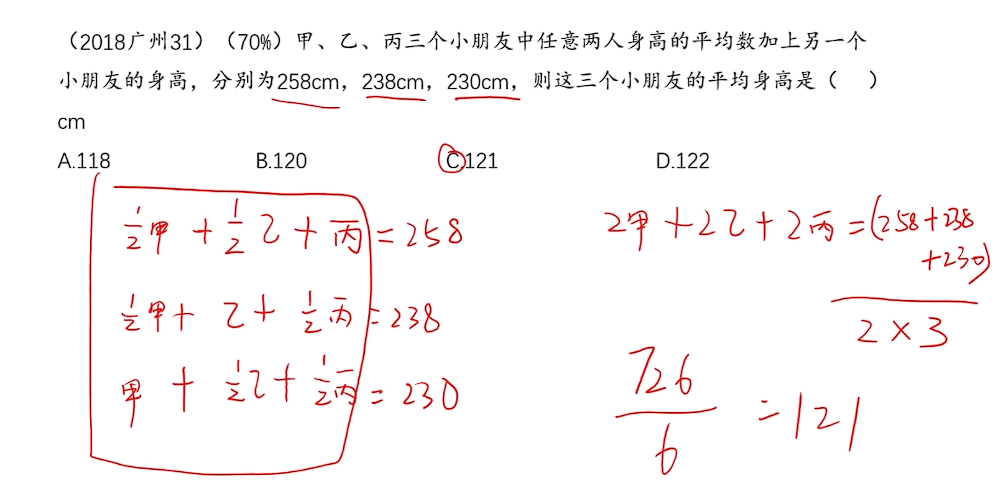 （2018广州31）（70%）甲、乙、丙三个小朋友中任意两人身高的平均数加上另一个
小朋友的身高，分别为258cm，238cm，230cm，则这三个小朋友的平均身高是（ ）
cm
A.118 B.120 C.121 D.122
1/2甲 + 1/2乙 + 丙 = 258
1/2甲 + 乙 + 1/2丙 = 238
甲 + 1/2乙 + 1/2丙 = 230
2甲 + 2乙 + 2丙 = (258 + 238
+ 230)
2 × 3
726/6 = 121